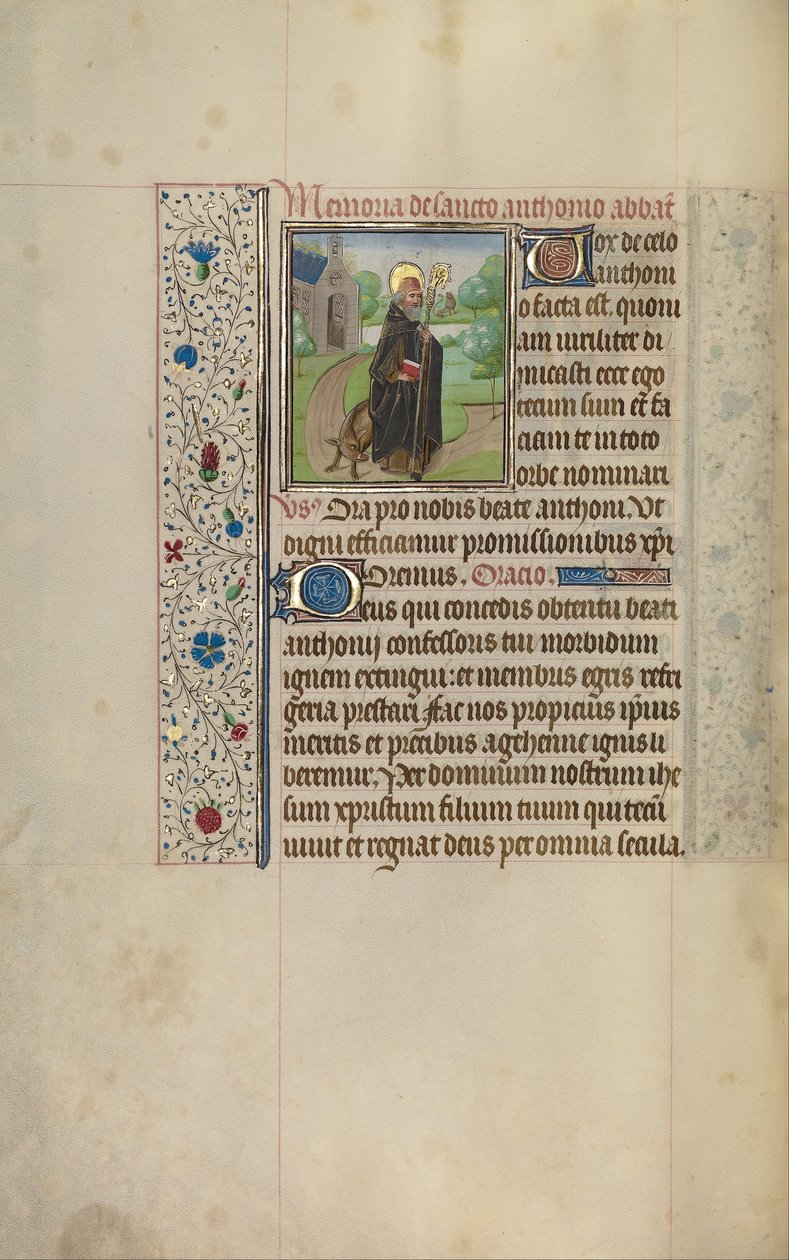 Memoria de sancto anthonio abbat̄
Vox de celo
anthoni
o facta est. quoni
am viriliter di
micasti ecce ego
tecum sum et fa
ciam te in toto
orbe nominari
Vs⁹ Ora pro nobis beate anthoni. Vt
digni efficiamur promissionibus xp̄i
Oremus. Oracio.
Deus qui concedis obtentu beati
anthonij confessoris tui morbidum
ignem extingui: et membris egris refri
geria prestari fac nos propicius ip̄ius
meritis et precibus a gehenne ignis li
beremur. Per dominum nostrum ihe
sum xpristum filium tuum qui tecū
viuit et regnat deus per omnia secula.